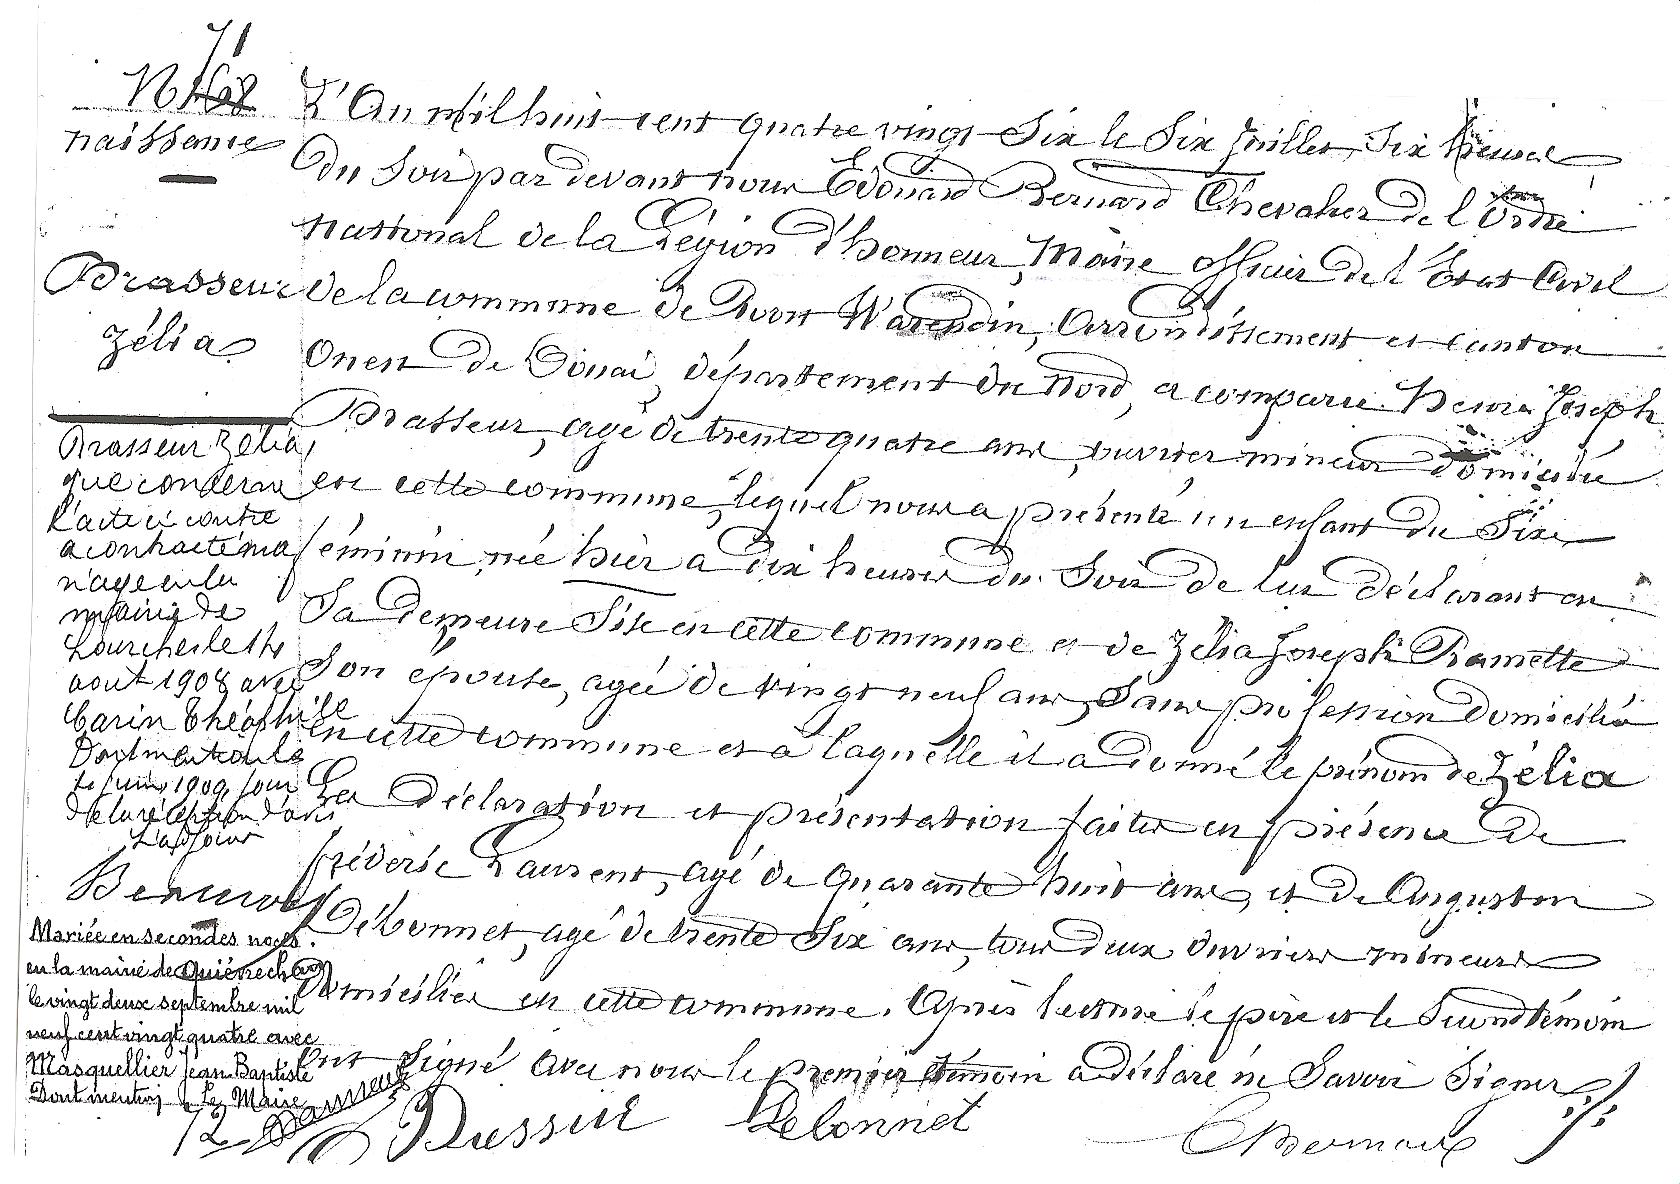 71
N° 68
naissance
Brasseur
Zélia
L'An mil huit cent quatre vingt Six le Six Juillet, Six heures
du Soir par devant nous Edouard Bernard Chevalier de l'Ordre
national de la Légion d'honneur, Maire officier de l'Etat Civil
de la commune de Roost Warendin, Arrondissement et canton
Ouest de Douai, département du Nord, a comparu Henri Joseph
Brasseur, agé de trente quatre ans, ouvrier mineur domicilié
en cette commune, lequel nous a présenté un enfant du Sixe
féminin, née hier a dix heures du Soir de lui déclarant en
Sa demeure Sise en cette commune et de Zélia Joseph Ramette
Son épouse, agée de vingt neuf ans, Sans profession domiciliée
en cette commune et à laquelle il a donné le prénom de Zélia
Les déclaration et présentation faites en présence de
fréderic Laurent, agé de quarante huit ans, et de Augustin
Débonnet, agé de trente Six ans, tous deux ouvriers mineurs
domiciliés en cette commune. Après lecture le père et le Second témoin
ont Signé avec nous le premier témoin a déclaré ne Savoir Signer
Brasseur Zélia,
que concerne
l'acte ci contre
a contracté ma
riage en la
mairie de
Lourches le
août 1908 avec
Carin Théophile
Dont mention le
juin 1909, jour
de la réception d'avis
L'adjoint
Mariée en secondes noces
en la mairie de Quiérechain
le vingt deux septembre mil
neuf cent vingt quatre avec
Masquellier Jean Baptiste
Dont mention Le Maire
Brasseur Debonnet EBernard